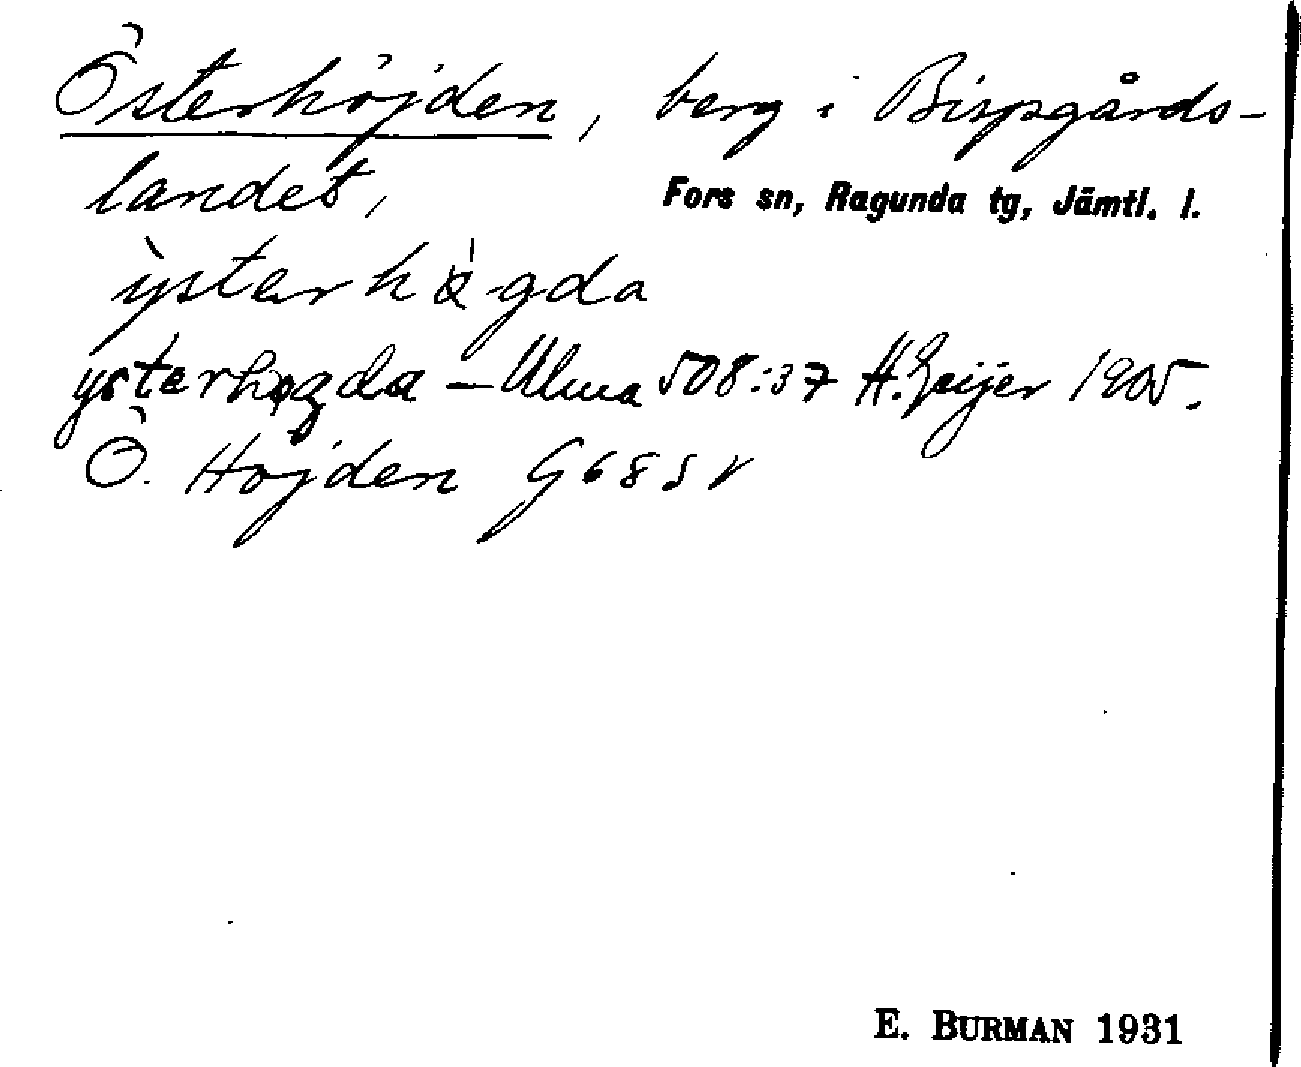 Österhöjden, berg i Bispgårds-
landet,
Fors sn, Ragunda tg, Jämtl. l.
ỳsterhøgda
ysterhøgda – Ulma 508:37 H. Geijer 1905.
Ö. Höjden G 68 S V
E. BURMAN 1931